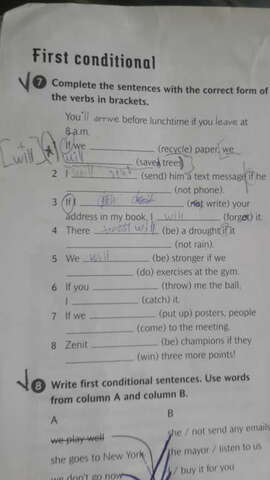 First conditional
7 Complete the sentences with the correct form of
the verbs in brackets.
You'll arrive before lunchtime if you leave at
8 a.m.
1 If we ____________ (recycle) paper, we
will ____________ (save) trees.
2 I will ____________ (send) him a text message if he
____________ (not phone).
3 If I ____________ (not write) your
address in my book, I will (forget) it.
4 There ____________ will (be) a drought if it
____________ (not rain).
5 We will (be) stronger if we
____________ (do) exercises at the gym.
6 If you ____________ (throw) me the ball,
I ____________ (catch) it.
7 If we ____________ (put up) posters, people
____________ (come) to the meeting.
8 Zenit ____________ (be) champions if they
____________ (win) three more points!
8 Write first conditional sentences. Use words
from column A and column B.
A B
we play well
she / not send any emails
she goes to New York
the mayor / listen to us
we don't go now
/ buy it for you